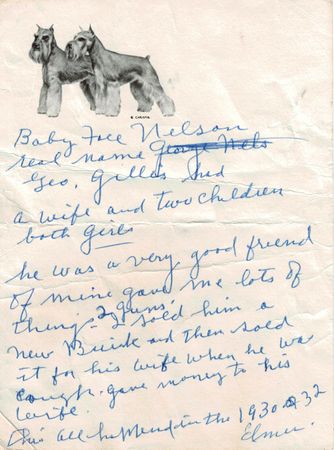 © CARATA
Baby Face Nelson
real name George Nels
Geo, Gilles had
a wife and two children
both Girls
he was a very good friend
of mine gave me lots of
things 2 guns,
I sold him a
new Buick and then sold
it for his wife when he was
cough. gave money to his
wife.
this all happend in the 1930 32
Elmer.